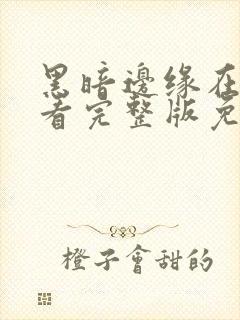 黑暗邊缘在
看完整版免
橙子會甜的